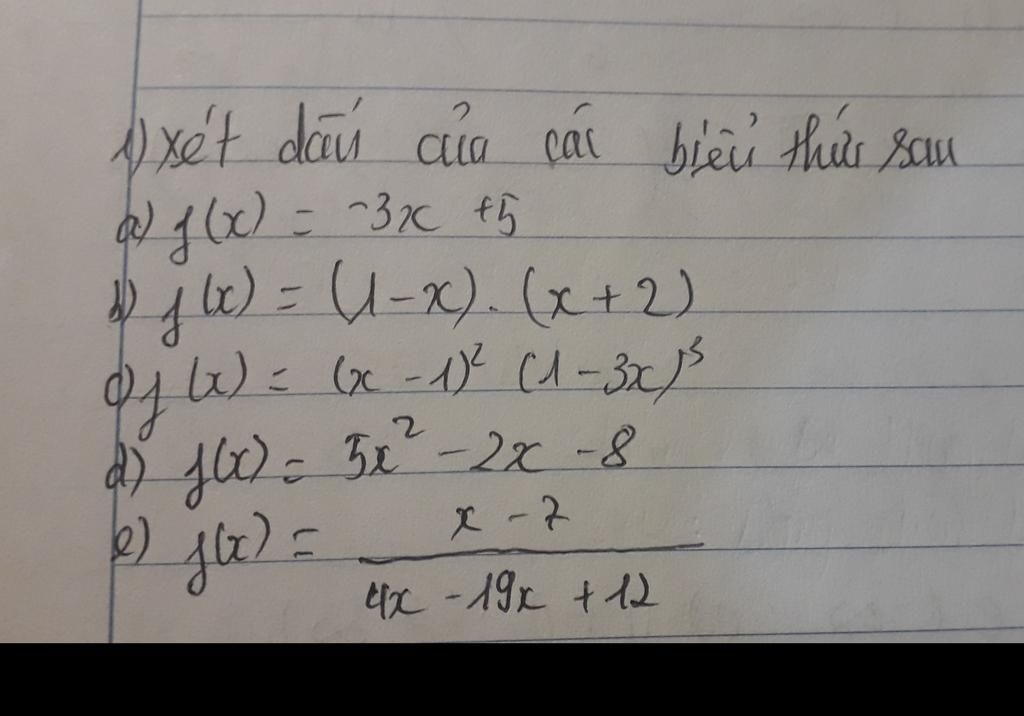 1) xét dấu của các biểu thức sau
a) f(x) = -3x +5
b) f(x) = (1-x).(x+2)
c) f(x) = (x-1)² (1-3x)³
d) f(x) = 5x² -2x -8
e) f(x) = x-7
4x -19x +12